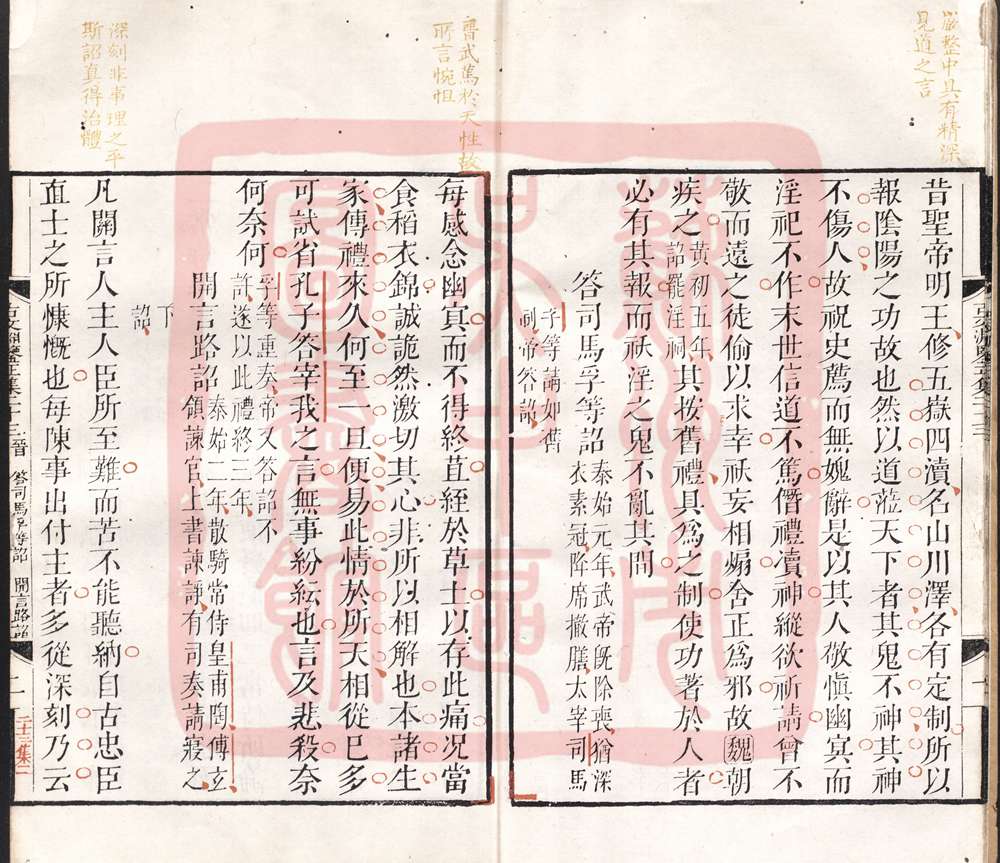 嚴整中具有精深
見道之言
昔聖帝明王修五嶽四瀆名山川澤各有定制所以
報陰陽之功故也然以道蒞天下者其鬼不神其神
不傷人故祝史薦而無媿辭是以其人敬愼幽冥而
淫祀不作末世信道不篤僭禮凟神縱欲祈請曾不
敬而遠之徒偷以求幸祅妄相煽舍正爲邪故魏朝
疾之黃初五年詔罷淫祠其按舊禮具爲之制使功著於人者
必有其報而祅淫之鬼不亂其間
答司馬孚等詔泰始元年武帝旣除喪猶深衣素冠降席撤膳太宰司馬
孚等請如舊制帝然詔
晋武篤於天性故
所言惋怛
每感念幽冥而不得終苴絰於草土以存此痛況當
食稻衣錦誠詭然激切其心非所以相解也本諸生
家傳禮來久何至一旦便易此情於所天相從已多
可試省孔子答宰我之言無事紛紜也言及悲殺奈
何奈何孚等重奏帝又答詔不許遂以此禮終三年
開言路詔泰始二年散騎常侍皇甫陶傅玄領諫官上書諫諍有司奏請寢之
下詔
深刻非事理之平
斯詔眞得治體
凡關言人主人臣所至難而苦不能聽納自古忠臣
直士之所慷慨也每陳事出付主者多從深刻乃云
古文淵鑒正集二十三 晉 答司馬孚等詔 開言路詔 二